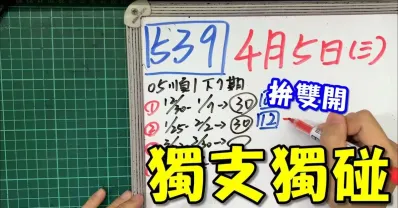 539 4月5日(三)
05順1下9期
① 12/30-1/9→30
拚雙開
② 1/25-2/2→30 12
獨支獨碰